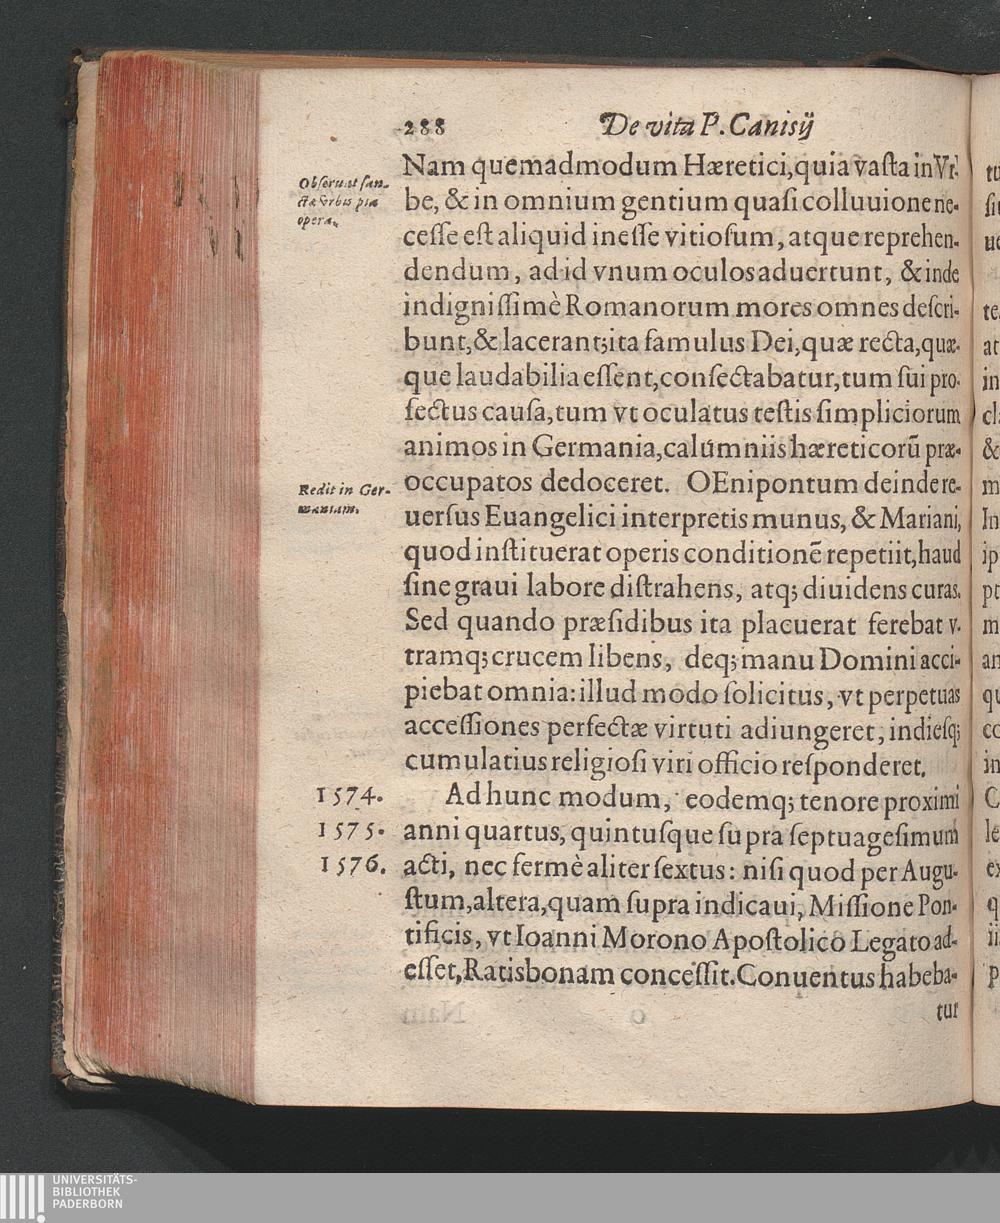 288 De vita P. Canisij
Nam quemadmodum Hæretici, quia vasta in Vr-
be, & in omnium gentium quasi colluuione ne-
cesse est aliquid inesse vitiosum, atque reprehen-
dendum, ad id vnum oculos aduertunt, & inde
indignissimè Romanorum mores omnes descri-
bunt, & lacerant; ita famulus Dei, quæ recta, quæ-
que laudabilia essent, consectabatur, tum sui pro-
fectus causa, tum vt oculatus testis simpliciorum
animos in Germania, calumniis hæreticorũ præ-
occupatos dedoceret. OEnipontum deinde re-
uersus Euangelici interpretis munus, & Mariani,
quod instituerat operis conditionẽ repetiit, haud
sine graui labore distrahens, atq; diuidens curas.
Sed quando præsidibus ita placuerat ferebat v-
tramq; crucem libens, deq; manu Domini acci-
piebat omnia: illud modo solicitus, vt perpetuas
accessiones perfectæ virtuti adiungeret, indiesq;
cumulatius religiosi viri officio responderet.
Ad hunc modum, eodemq; tenore proximi
anni quartus, quintusque supra septuagesimum
acti, nec fermè aliter sextus: nisi quod per Augu-
stum, altera, quam supra indicaui, Missione Pon-
tificis, vt Ioanni Morono Apostolico Legato ad-
esset, Ratisbonam concessit. Conuentus habeba-
tur
Obseruat san-
ctæ vrbis pia
opera.
Redit in Ger-
maniam.
1574.
1575.
1576.
UNIVERSITÄTS-
BIBLIOTHEK
PADERBORN